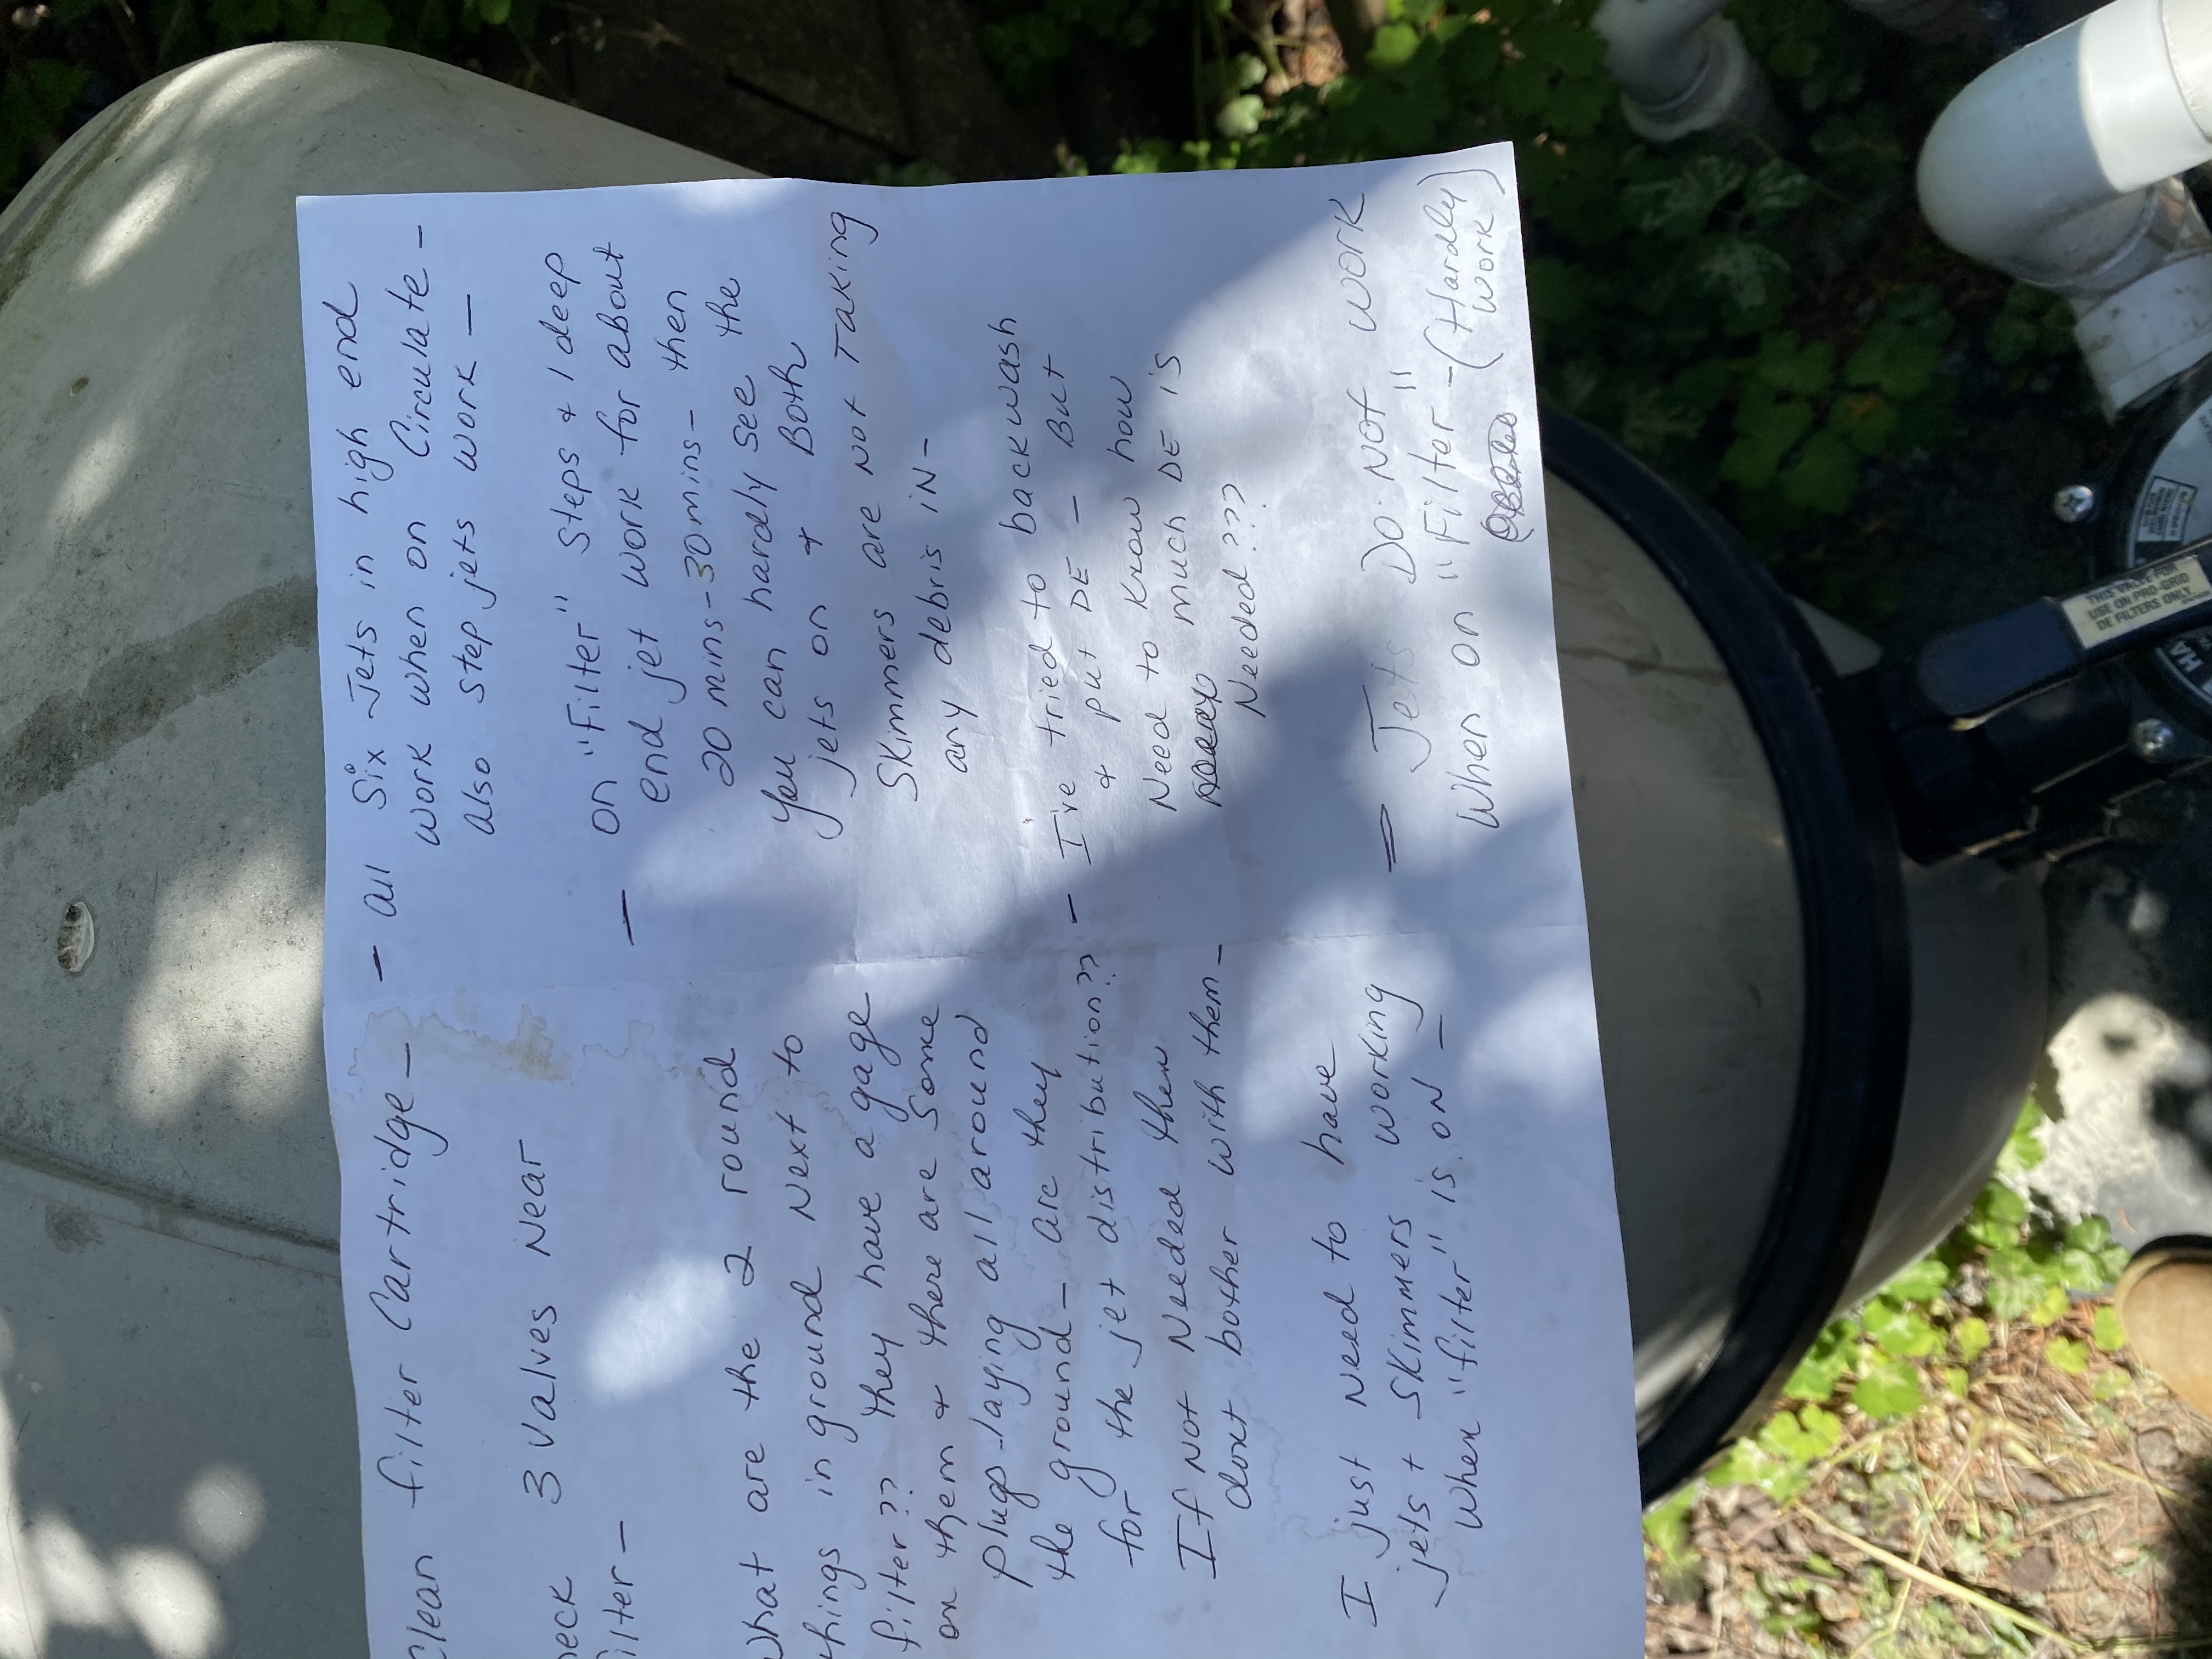 Clean filter Cartridge -
heck 3 valves Near
filter -
what are the 2 round
things in ground next to
filter?? they have a gage
on them + there are Some
plugs laying all around
the ground - are they
for the jet distribution??
If Not Needed then
dont bother with them -
I just Need to have
jets + Skimmers working
when "filter" is ON -
- all Six Jets in high end
work when on Circulate -
also step jets work -
- on "Filter" Steps + 1 deep
end jet work for about
20 mins - 30 mins - then
you can hardly see the
jets on + Both
Skimmers are Not Taking
any debris IN -
- I've tried to backwash
+ put DE - But
Need to Know how
much DE is
Needed???
- Jets Do Not work
When on "Filter" - (Hardly
work)
THIS VALVE FOR
USE ON PRO-GRID
DE FILTERS ONLY
HA